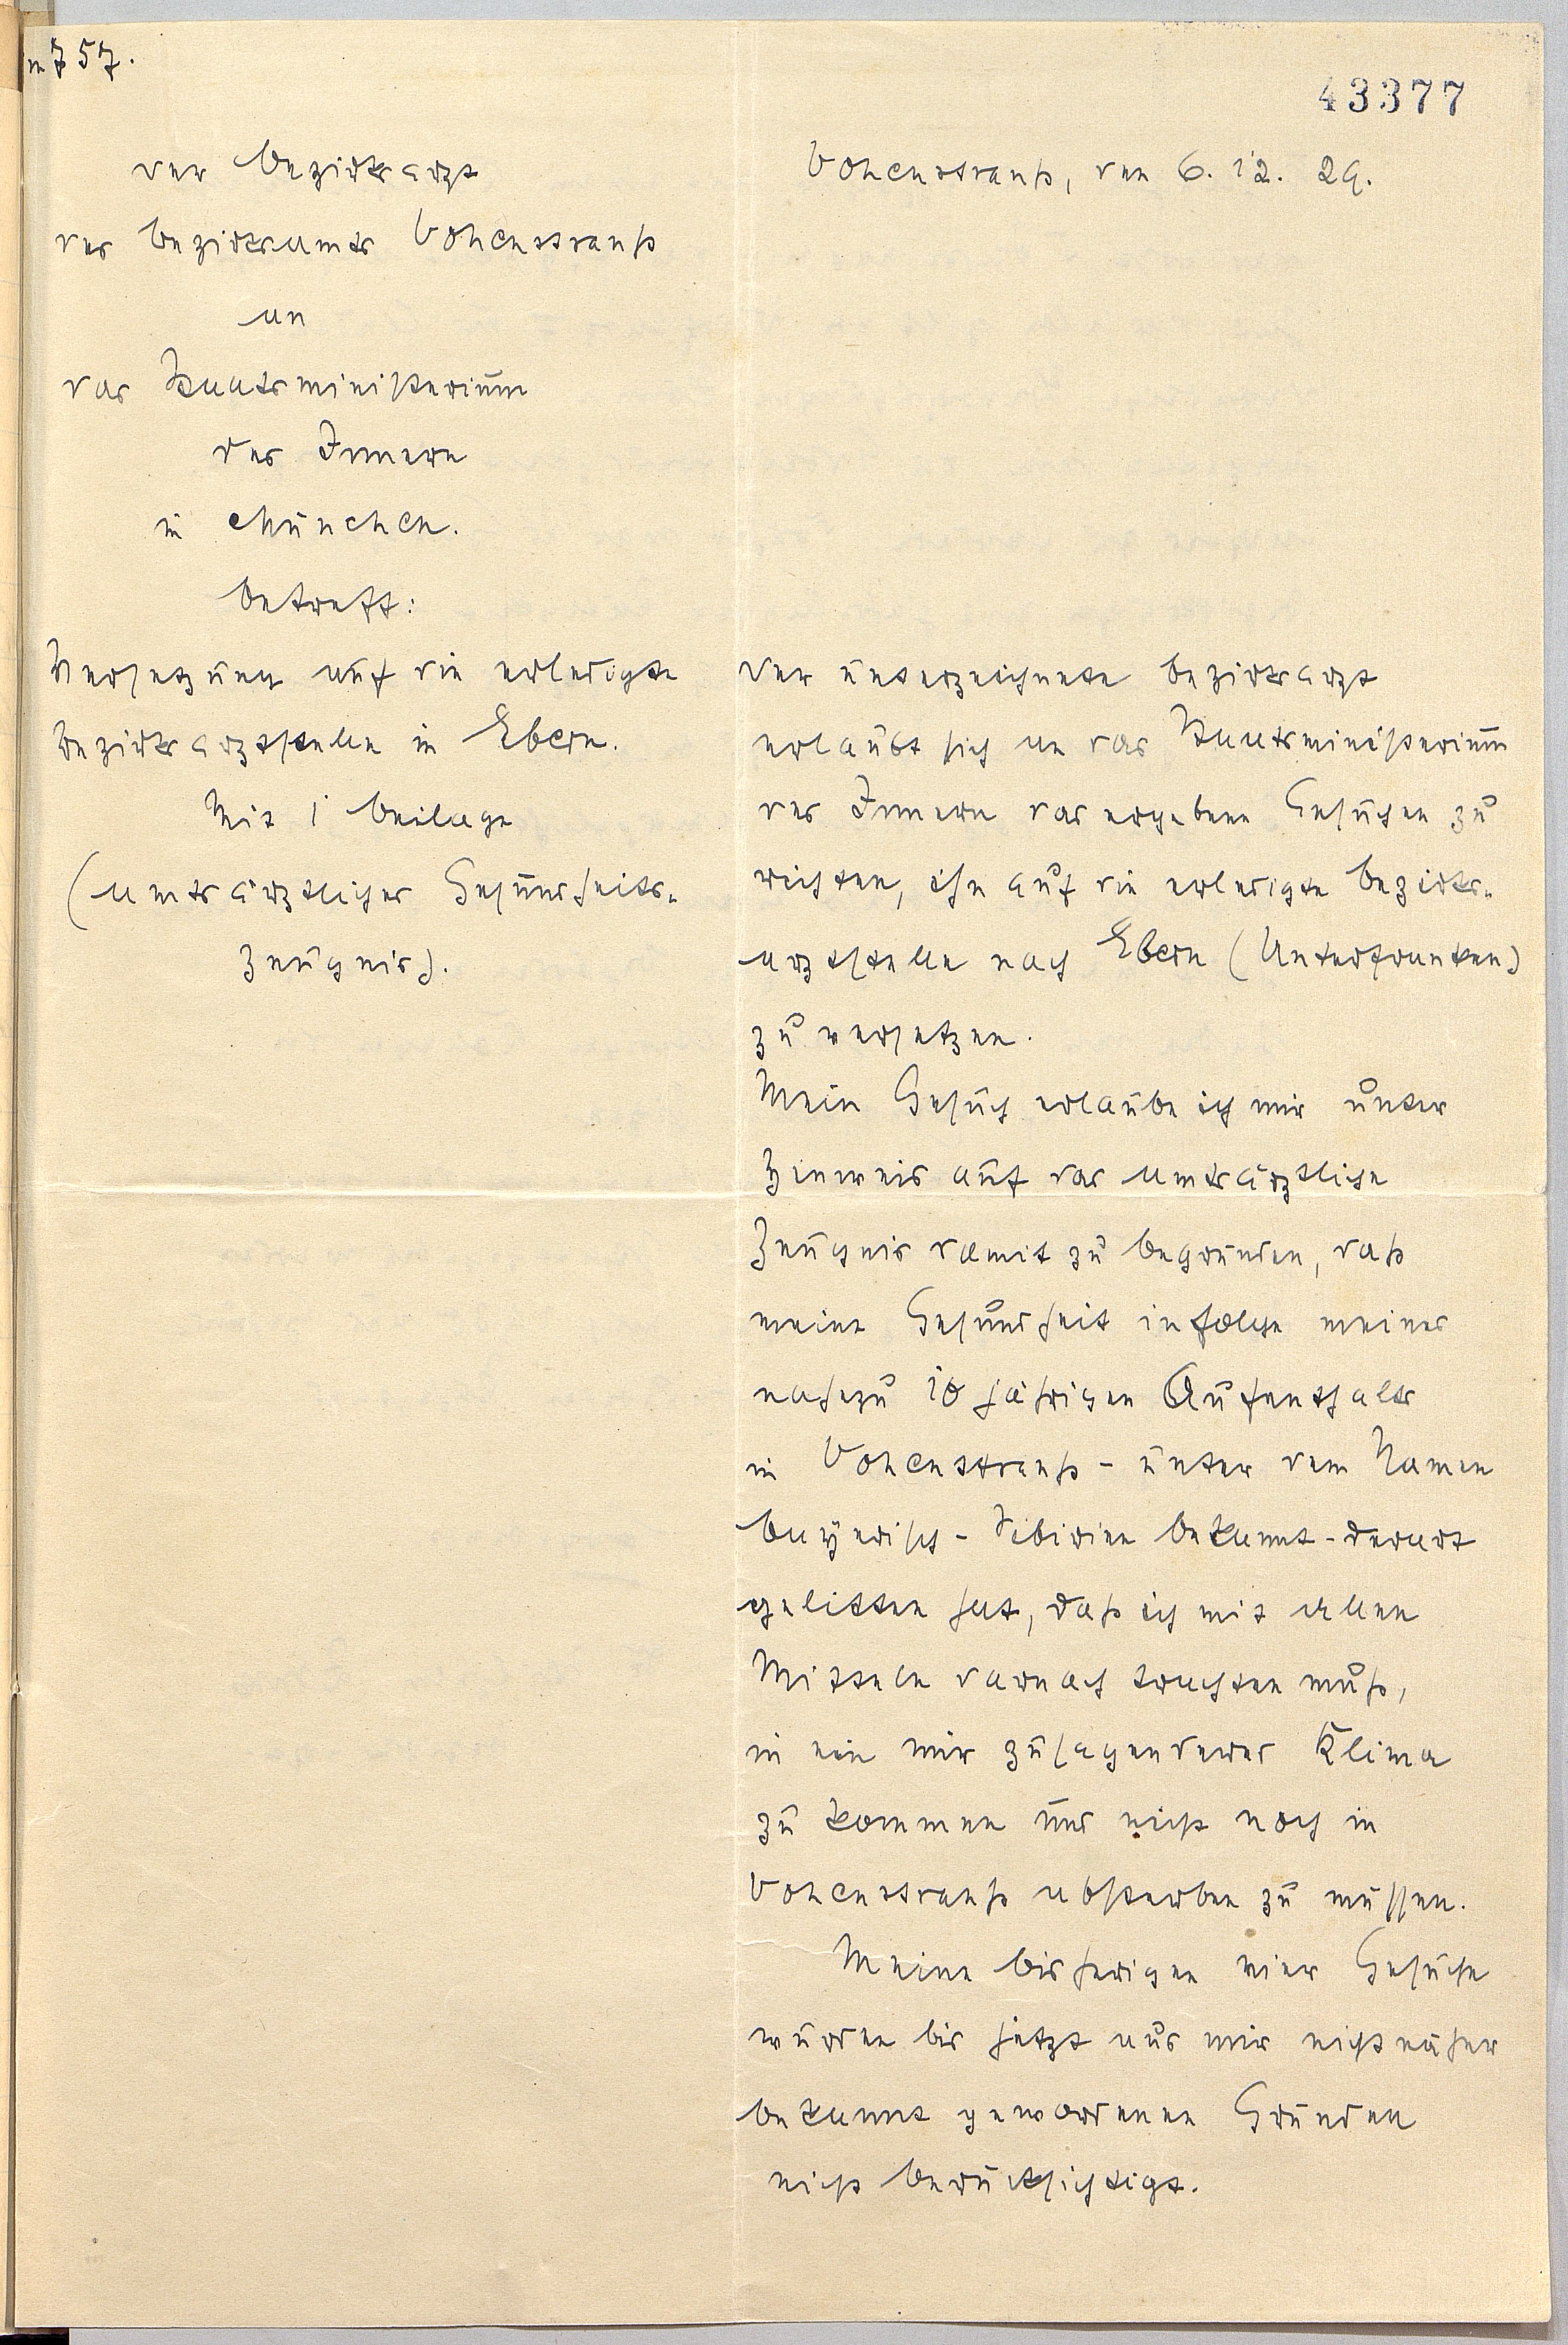 757.
43377
Der Bezirksarzt
des Bezirksamts Vohenstrauß
an
das Staatsministerium
des Innern
in München.
Betreff:
Versetzung auf die erledigte
Bezirksarztstelle in Ebern.
Mit 1 Beilage
(Amtsärztliches Gesundheits-
zeugnis).
Vohenstrauß, den 6. 12. 29.
Der unterzeichnete Bezirksarzt
erlaubt sich an das Staatsministerium
des Innern das ergebene Gesuchen zu
richten, ihn auf die erledigte Bezirks-
arztstelle nach Ebern (Unterfranken)
zu versetzen.
Mein Gesuch erlaube ich mir unter
Hinweis auf das amtsärztliche
Zeugnis damit zu begründen, daß
meine Gesundheit infolge meines
nahezu 10 jährigen Aufenthalts
in Vohenstrauß - unter dem Namen
Bayerisch - Sibirien bekannt - derart
gelitten hat, daß ich mit allen
Mitteln darnach trachten muß,
in ein mir zusagenderes Klima
zu kommen und nicht noch in
Vohenstrauß absterben zu müssen.
Meine bisherigen vier Gesuche
wurden bis jetzt aus mir nicht näher
bekannt gewordenen Gründen
nicht berücksichtigt.